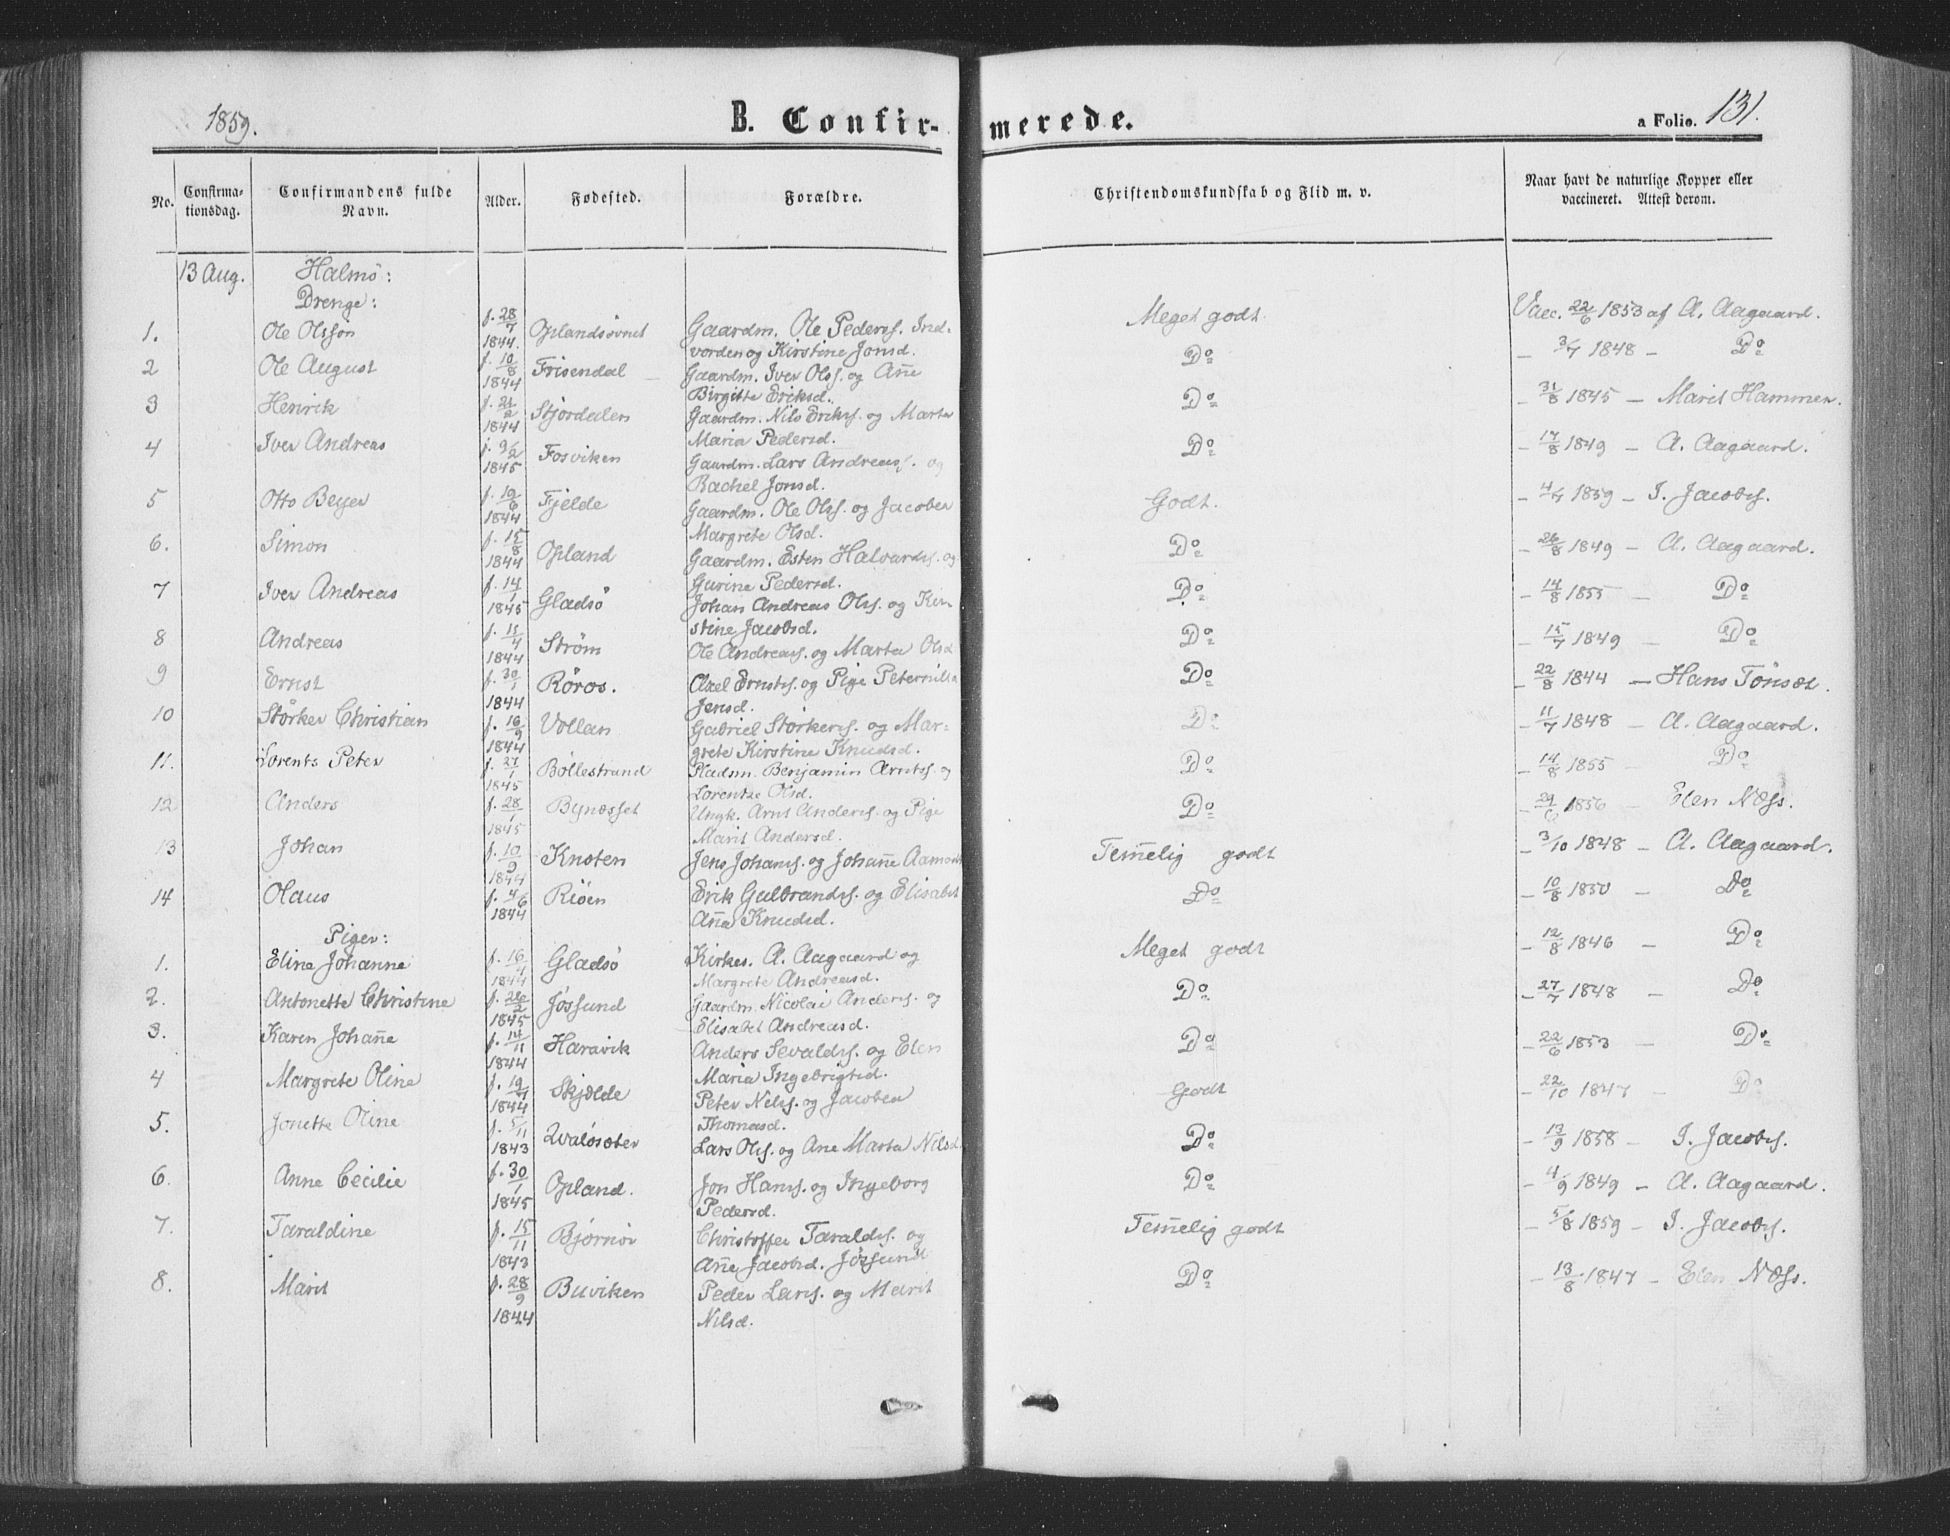 1859.
B. Confirmerede.
a Folio. 131.
No. Confirmationsdag. Confirmandens fulde Navn. Alder. Fødested. Forældre. Christendomskundskab og Flid m. v. Naar havt de naturlige Kopper eller vaccineret. Attest derom.
13 Aug. Halmø:
Drenge:
1. Ole Olssøn f. 28/7 1844. Oplandsøvnet Gaardm. Ole Peders. Indvorden og Kirstine Jonsd. Meget godt. Vacc. 22/6 1853 af A. Aagaard.
2 Ole August f. 10/8 1844 Frisendal Gaardm. Iver Ols. og Ane Birgitte Eriksd. Do - 3/7 1848 - Do
3 Henrik f. 21/2 1844 Stjørdalen Gaardm. Nils Eriks. og Marta Maria Pedersd. Do - 31/8 1845 - Marit Hammer.
4 Iver Andreas f. 9/2 1845 Fosviken Gaardm. Lars Andreas. og Rachel Jonsd. Do - 17/8 1849 - A. Aagaard.
5 Otto Beyer f. 19/6 1844 Fjelde Gaardm. Ole Ols. og Jacobea Margrete Olsd. Godt. - 4/7 1859 - I. Jacobs.
6. Simon f. 15/8 1844 Opland Gaardm. Esten Halvards. og Gurine Pedersd. Do - 26/8 1849 - A. Aagaard.
7 Iver Andreas f. 14/1 1845 Gladsø Johan Andreas Ols. og Kirstine Jacobsd. Do - 14/8 1855 - Do
8 Andreas f. 15/4 1844 Strøm Ole Andreas. og Marta Olsd Do - 15/7 1849 - Do
9 Ernst f. 30/1 1844 Røros. Axel Ernsts. og Pige Peternilla Jensd. Do - 22/8 1844 - Hans Tønset.
10 Størker Christian f. 16/9 1844 Vollan Gabriel Størkers. og Margrete Kirstine Knudsd. Do - 11/7 1848 - A. Aagaard.
11. Lorents Peter f. 27/1 1845 Bøllestrand Pladsm. Benjamin Arnts. og Lorentze Olsd. Do - 14/8 1855 - Do
12 Anders f. 28/1 1845 Bynæsset Ungk. Arnt Anders. og Pige Marit Andersd. Do - 29/6 1856 - Elen Næss.
13 Johan f. 10/9 1844 Knoten Jens Johans. og Johanne Aamodt Temmelig godt - 3/10 1848 - A. Aagaard.
14 Olaus f. 4/6 1844 Riøen Erik Gulbrands. og Elisabet Anna Knudsd. Do - 10/8 1850 - Do
Piger:
1. Eline Johanne f. 16/4 1844 Gladsø Kirkes. A. Aagaard og Margrete Andreasd. Meget godt - 12/8 1846 - Do
2. Antonette Christine f. 26/2 1845 Jøssund Gaardm. Nicolai Anders. og Elisabet Andreasd. Do - 27/7 1848 - Do
3. Karen Johanne f. 14/11 1844 Haravik Anders Sevalds. og Elen Maria Ingebrigtsd. Do - 22/6 1853 - Do
4 Margrete Oline f. 19/7 1844 Skjølde Peter Nils. og Jacobea Thomasd. Godt - 22/10 1847 - Do
5. Jonette Oline f. 5/11 1843 Qvaløsæter Lars Ols. og Ane Marta Nilsd. Do - 13/9 1858 - I. Jacobs.
6. Anne Cecilie f. 30/1 1845 Opland. Jon Hans. og Ingeborg Pedersd. Do - 4/9 1849 - A. Aagaard.
7. Taraldine f. 15/11 1843 Bjørnør Christoffer Taralds. og Anne Jacobsd. Jøssund Temmelig godt - 5/8 1859 - I. Jacobs.
8. Marit f. 28/9 1844 Buviken Peder Lars. og Marit Nilsd. Do - 13/8 1847 - Elen Næss.